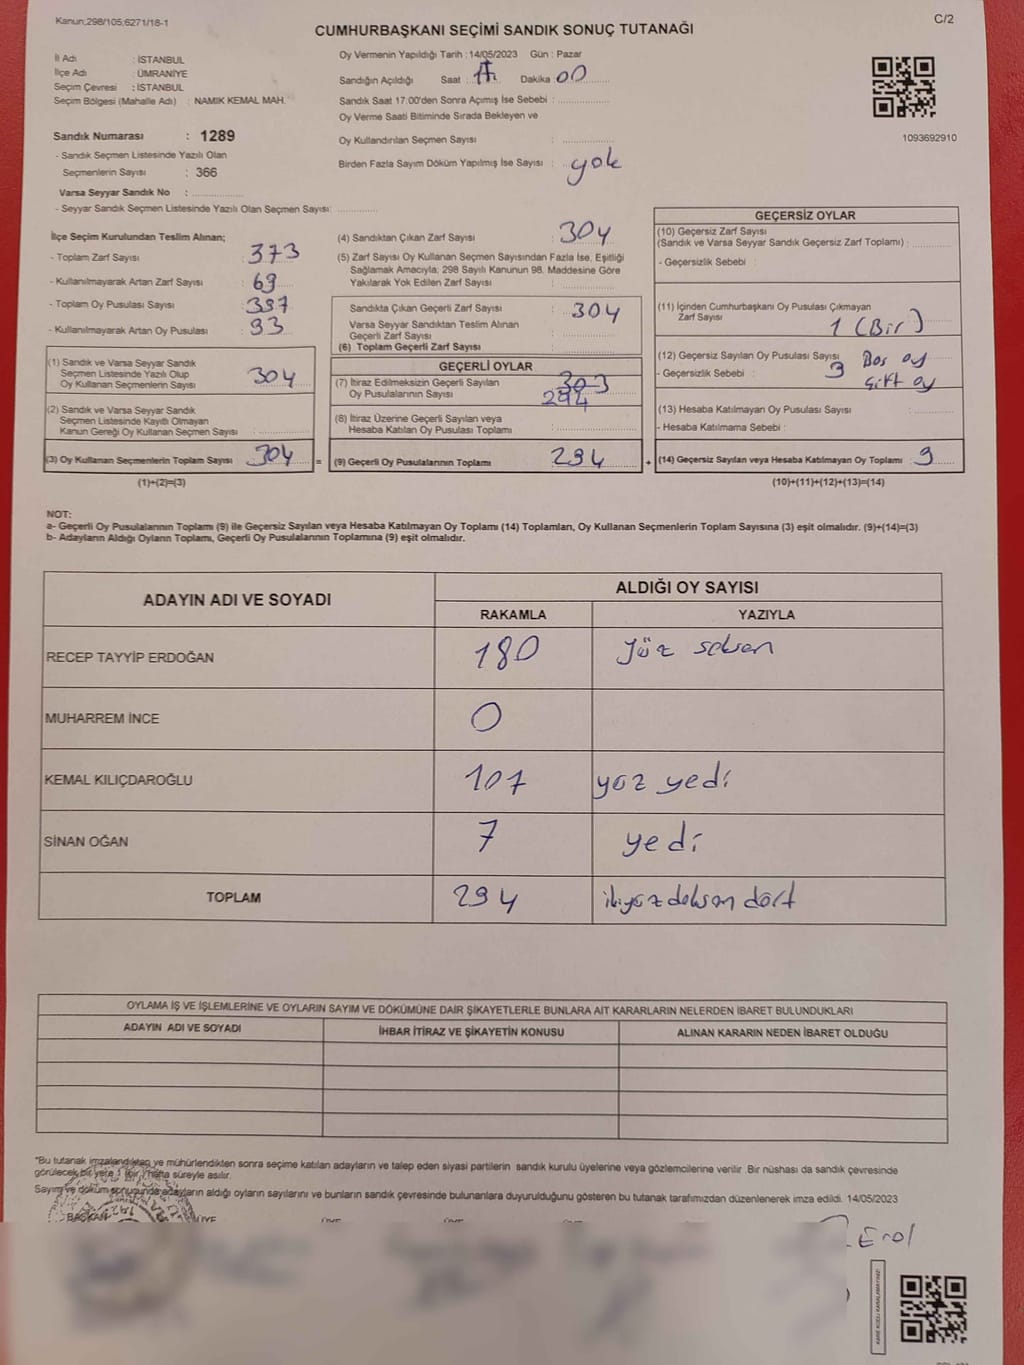 Kanun;298/105;6271/18-1
C/2
CUMHURBAŞKANI SEÇİMİ SANDIK SONUÇ TUTANAĞI
İl Adı : İSTANBUL
İlçe Adı : ÜMRANİYE
Seçim Çevresi : İSTANBUL
Seçim Bölgesi (Mahalle Adı) : NAMIK KEMAL MAH.
Sandık Numarası : 1289
- Sandık Seçmen Listesinde Yazılı Olan
Seçmenlerin Sayısı : 366
Varsa Seyyar Sandık No :
- Seyyar Sandık Seçmen Listesinde Yazılı Olan Seçmen Sayısı:
Oy Vermenin Yapıldığı Tarih : 14/05/2023 Gün : Pazar
Sandığın Açıldığı Saat : 17 Dakika 00
Sandık Saat 17:00'den Sonra Açımış İse Sebebi :
Oy Verme Saati Bitiminde Sırada Bekleyen ve
Oy Kullandırılan Seçmen Sayısı :
Birden Fazla Sayım Döküm Yapılmış İse Sayısı : yok
1093692910
İlçe Seçim Kurulundan Teslim Alınan;
- Toplam Zarf Sayısı : 373
- Kullanılmayarak Artan Zarf Sayısı : 69
- Toplam Oy Pusulası Sayısı : 397
- Kullanılmayarak Artan Oy Pusulası : 93
(1) Sandık ve Varsa Seyyar Sandık
Seçmen Listesinde Yazılı Olup
Oy Kullanan Seçmenlerin Sayısı : 304
(2) Sandık ve Varsa Seyyar Sandık
Seçmen Listesinde Kayıtlı Olmayan
Kanun Gereği Oy Kullanan Seçmen Sayısı :
(3) Oy Kullanan Seçmenlerin Toplam Sayısı : 304 =
(1)+(2)=(3)
(4) Sandıktan Çıkan Zarf Sayısı : 304
(5) Zarf Sayısı Oy Kullanan Seçmen Sayısından Fazla İse, Eşitliği
Sağlamak Amacıyla; 298 Sayılı Kanunun 98. Maddesine Göre
Yakılarak Yok Edilen Zarf Sayısı :
Sandıkta Çıkan Geçerli Zarf Sayısı : 304
Varsa Seyyar Sandıktan Teslim Alınan
Geçerli Zarf Sayısı :
(6) Toplam Geçerli Zarf Sayısı :
GEÇERLİ OYLAR
(7) İtiraz Edilmeksizin Geçerli Sayılan 303
Oy Pusulalarının Sayısı : 294
(8) İtiraz Üzerine Geçerli Sayılan veya
Hesaba Katılan Oy Pusulası Toplamı :
(9) Geçerli Oy Pusulalarının Toplamı : 294 +
GEÇERSİZ OYLAR
(10) Geçersiz Zarf Sayısı
(Sandık ve Varsa Seyyar Sandık Geçersiz Zarf Toplamı) :
- Geçersizlik Sebebi :
(11) İçinden Cumhurbaşkanı Oy Pusulası Çıkmayan
Zarf Sayısı : 1 (Bir)
(12) Geçersiz Sayılan Oy Pusulası Sayısı : 9 Boş oy
- Geçersizlik Sebebi : Çift oy
(13) Hesaba Katılmayan Oy Pusulası Sayısı :
- Hesaba Katılmama Sebebi :
(14) Geçersiz Sayılan veya Hesaba Katılmayan Oy Toplamı : 9
(10)+(11)+(12)+(13)=(14)
NOT:
a- Geçerli Oy Pusulalarının Toplamı (9) ile Geçersiz Sayılan veya Hesaba Katılmayan Oy Toplamı (14) Toplamları, Oy Kullanan Seçmenlerin Toplam Sayısına (3) eşit olmalıdır. (9)+(14)=(3)
b- Adayların Aldığı Oyların Toplamı, Geçerli Oy Pusulalarının Toplamına (9) eşit olmalıdır.
ADAYIN ADI VE SOYADI ALDIĞI OY SAYISI
RAKAMLA YAZIYLA
RECEP TAYYİP ERDOĞAN 180 yüz seksen
MUHARREM İNCE 0
KEMAL KILIÇDAROĞLU 107 yüz yedi
SİNAN OĞAN 7 yedi
TOPLAM 294 ikiyüz doksan dört
OYLAMA İŞ VE İŞLEMLERİNE VE OYLARIN SAYIM VE DÖKÜMÜNE DAİR ŞİKAYETLERLE BUNLARA AİT KARARLARIN NELERDEN İBARET BULUNDUKLARI
ADAYIN ADI VE SOYADI İHBAR İTİRAZ VE ŞİKAYETİN KONUSU ALINAN KARARIN NEDEN İBARET OLDUĞU
"Bu tutanak imzalandıktan ve mühürlendikten sonra seçime katılan adayların ve talep eden siyasi partilerin sandık kurulu üyelerine veya gözlemcilerine verilir. Bir nüshası da sandık çevresinde
görülecek bir yere 1 (bir) hafta süreyle asılır.
Sayım ve döküm sonucunda adayların aldığı oyların sayılarını ve bunların sandık çevresinde bulunanlara duyurulduğunu gösteren bu tutanak tarafımızdan düzenlenerek imza edildi. 14/05/2023
BAŞKAN ÜYE
Erol